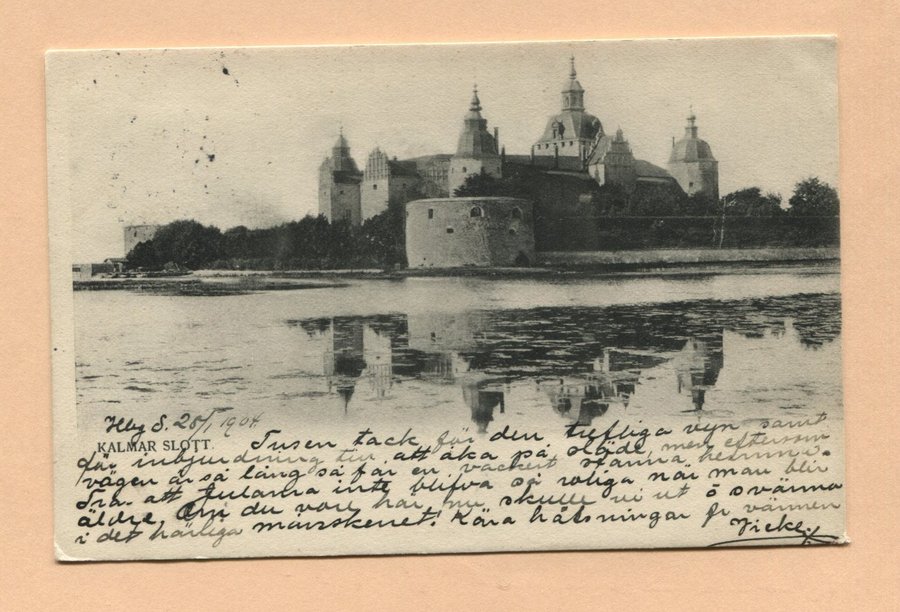 Hbg S. 25/1 1904
KALMAR SLOTT.
Tusen tack för den trefliga vyn samt
för inbjudning till att åka på släde, men eftersom
vägen är så lång så får en vackert stanna hemma.
Tra att jularna inte blifva så roliga när man blir
äldre, Om du vore här nu skulle vi ut o svärma
i det härliga månskenet! Kära hälsningar fr vännen
Vicke.